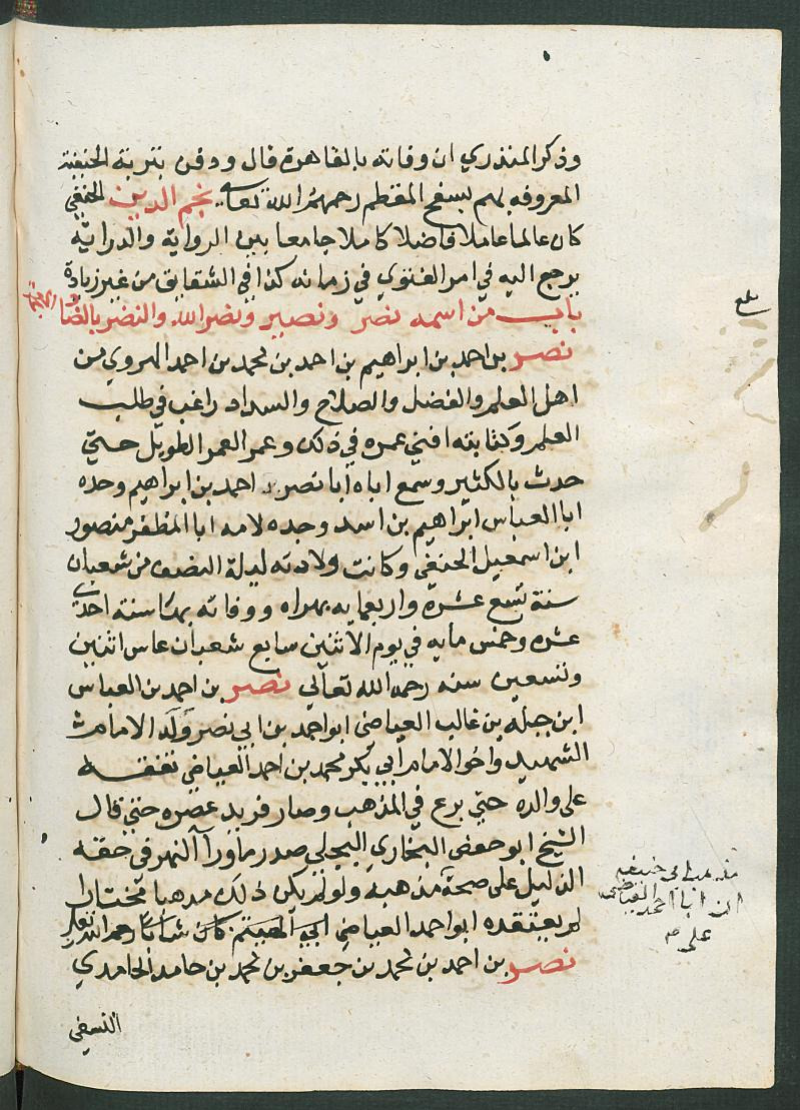 وذكر المنذري ان وفاته بالقاهرة قال ودفن بتربة الحنفية
المعروفة بهم بسفح المقطم رحمهم الله تعالى نجم الدين الحنفي
كان عالما عاملا فاضلا كاملا جامعا بين الرواية والدراية
يرجع اليه في امر الفتوي في زمانه كذا في الشقايق من غير زيادة
باب من اسمه نصر ونصير ونصر الله والنضر بالضاد
نصر بن احمد بن ابراهيم بن احمد بن محمد بن احمد الهروي من
اهل العلم والفضل والصلاح والسداد راغب في طلب
العلم وكتابته افني عمره في ذلك وعمر العمر الطويل حتي
حدث بالكثير وسمع اباه ابا نصر احمد بن ابراهيم وجده
ابا العباس ابراهيم بن اسد وجده لامه ابا المظفر منصور
ابن اسمعيل الحنفي وكانت ولادته ليلة النصف من شعبان
سنة تسع عشره واربعمايه بهراه ووفاته بها سنه احدي
عشره وخمس مايه في يوم الاثنين سابع شعبان عاس اثنين
وتسعين سنه رحمه الله تعالي نصر بن احمد بن العباس
ابن جبله بن غالب العياضي ابو احمد بن ابي نصر ولد الامام
الشهيد واخو الامام ابي بكر محمد بن احمد العياضي تفقه
علي والده حتي برع في المذهب وصار فريد عصره حتي قال
الشيخ ابو حفص البخاري البجلي صدر ماورآ النهر في حقه
الدليل على صحة مذهبه ولو لم يكن ذلك مذهبا مختارا
لم يعتقده ابو احمد العياضي كان شابا رحمه الله تعالي
نصر بن احمد بن محمد بن جعفر بن محمد بن حامد الحامدي
النسفي
بلغ
ابي حنيفه
ان ابا احمد العياضي
على